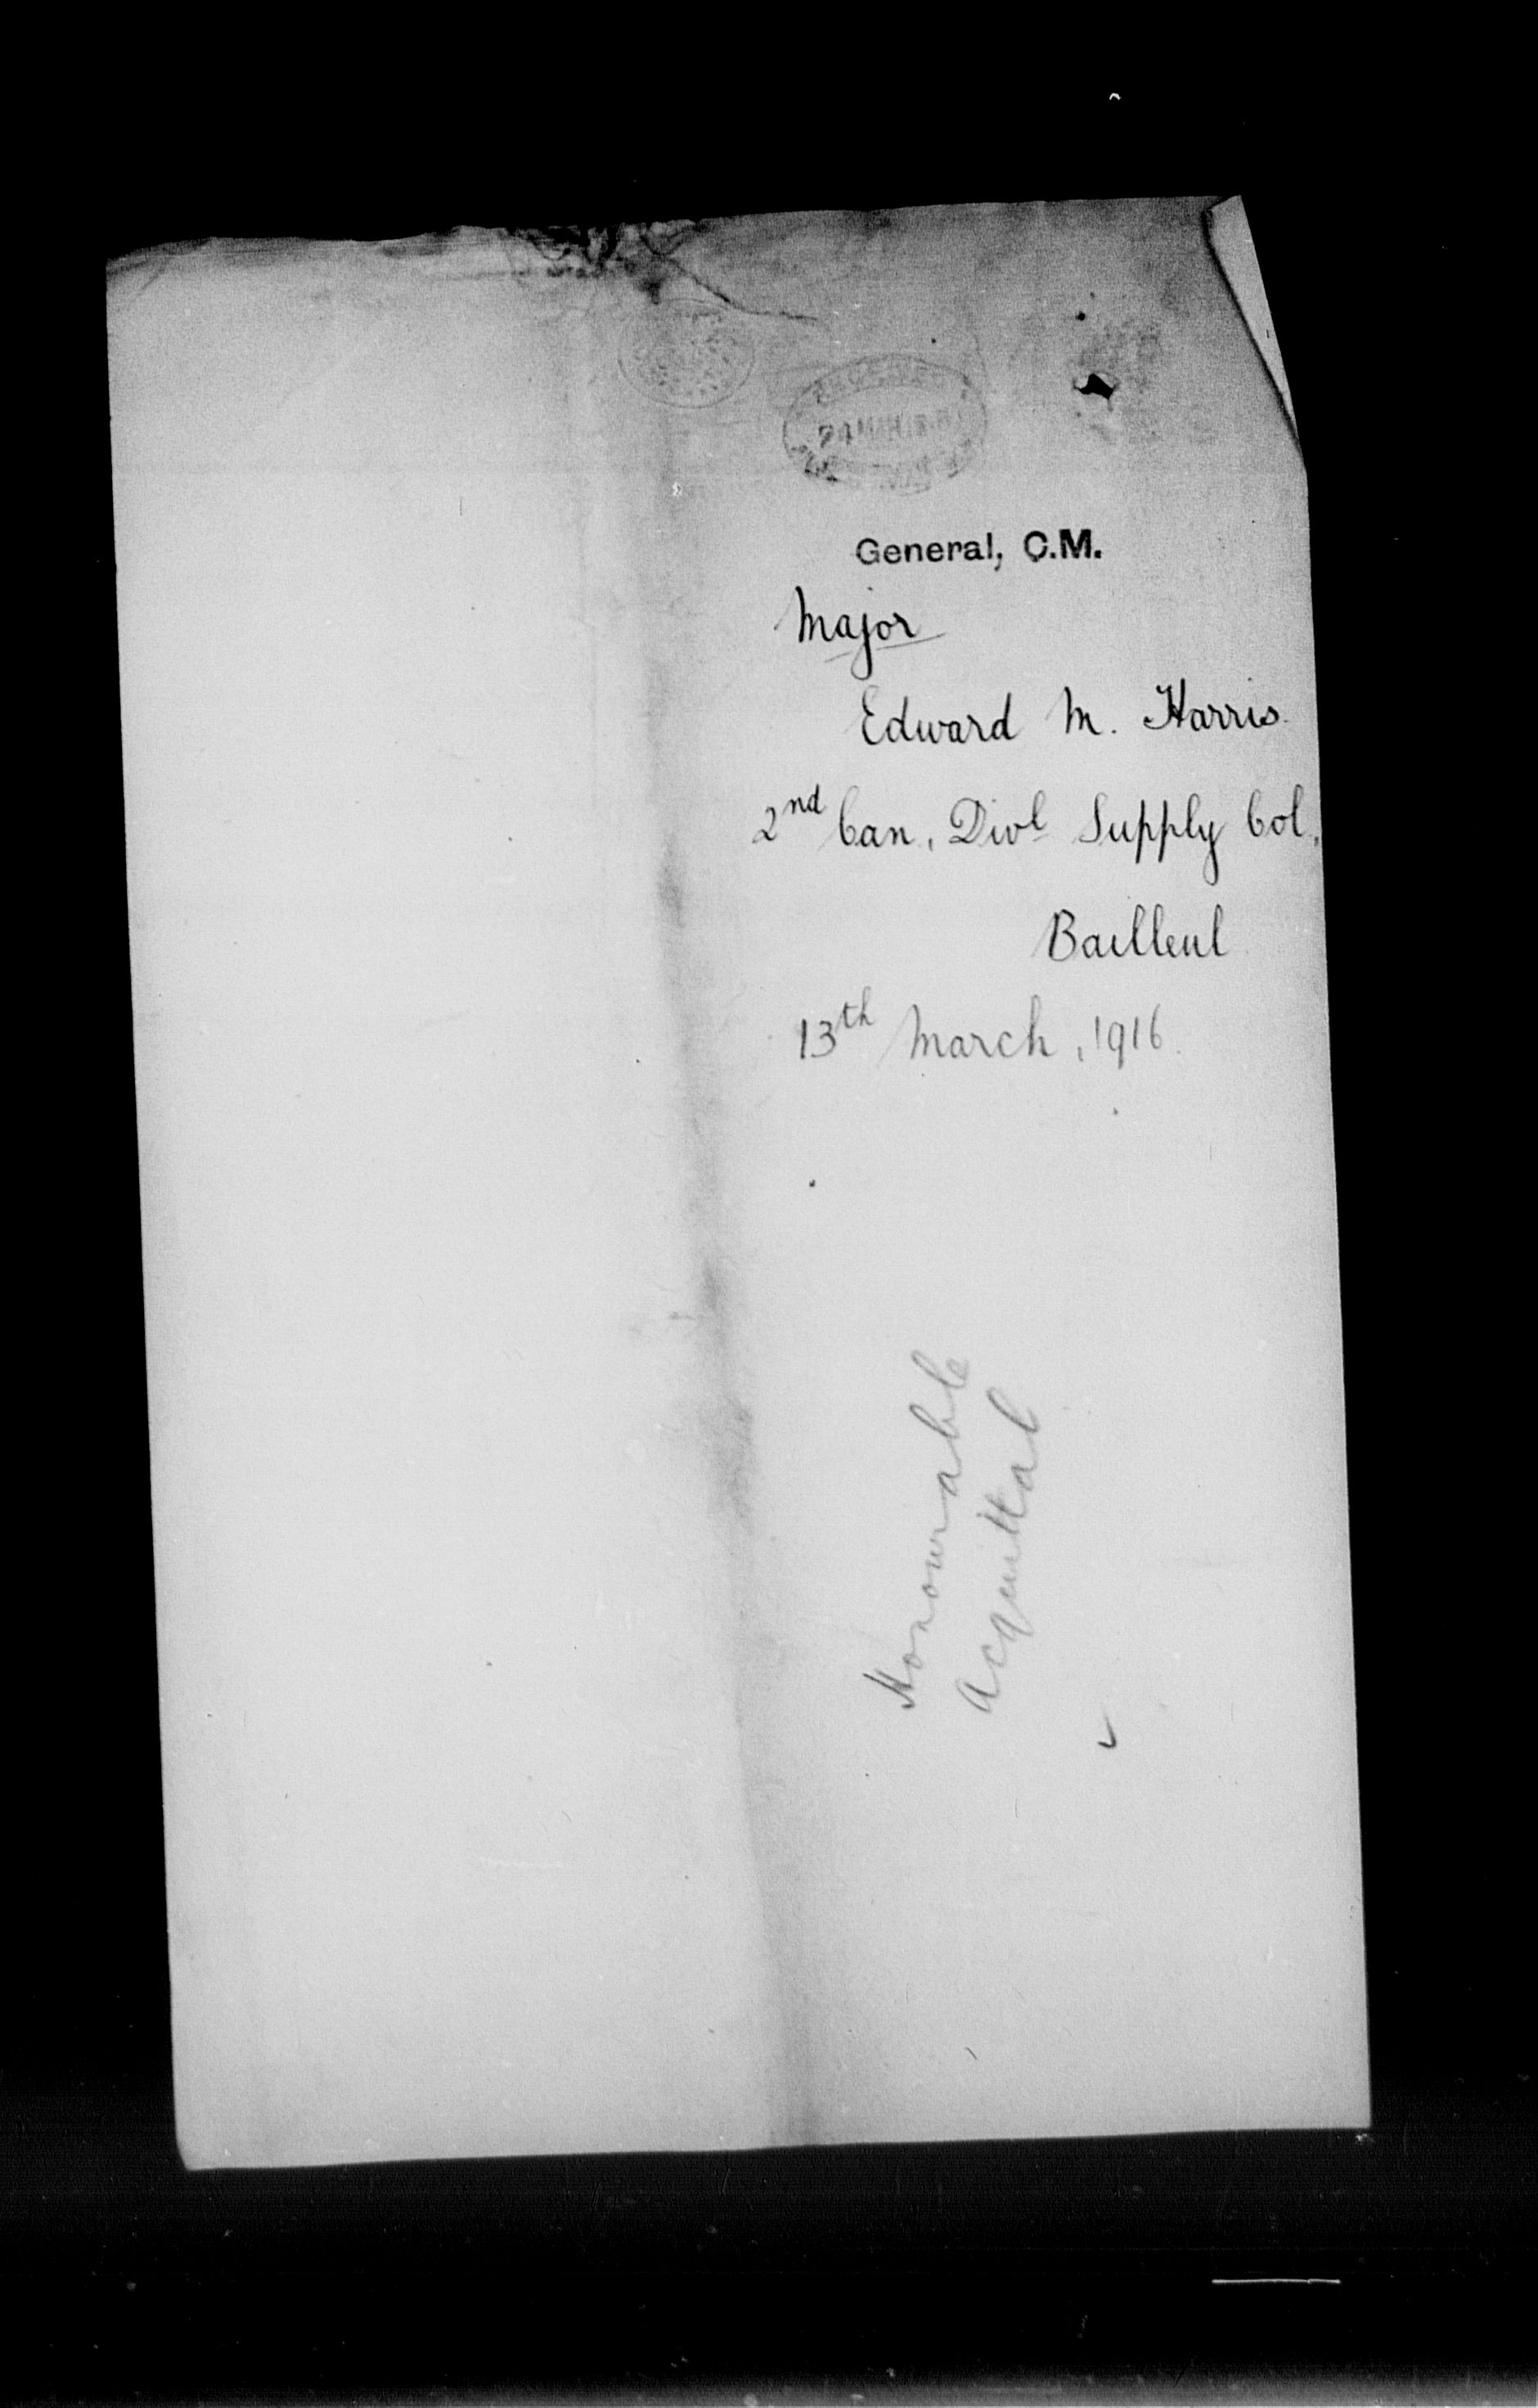 RECEIVED
24 MAR
General, C.M.
Major
Edward M. Harris.
2nd Can. Divl Supply Col.
Bailleul
13th March, 1916.
Honourable
Acquittal